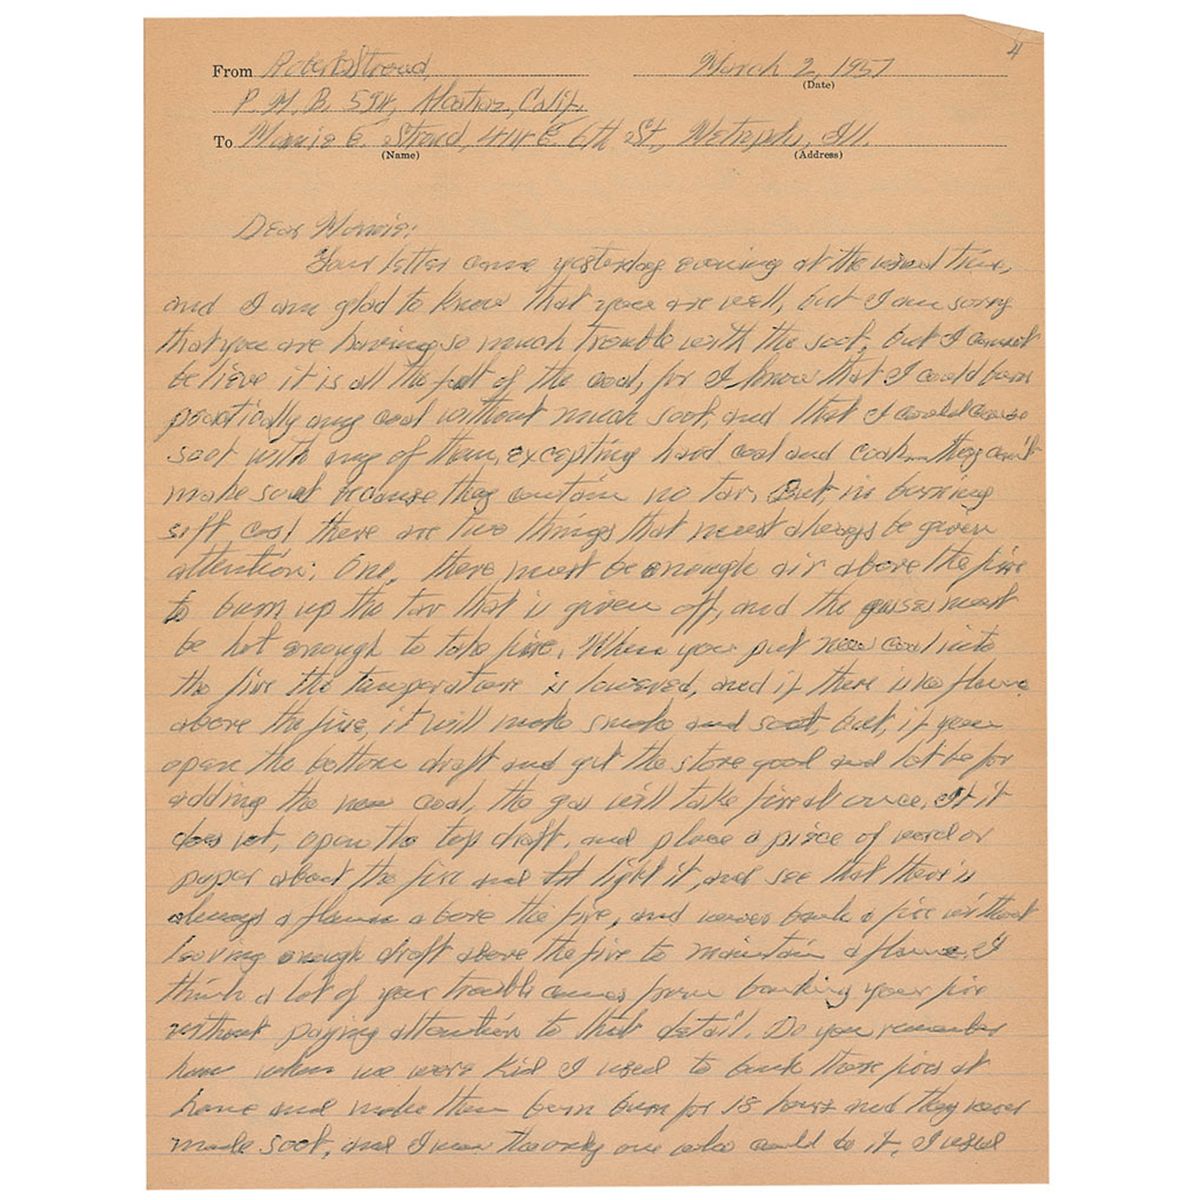 4
From Robert Stroud, March 2, 1957
(Date)
P.M.B. 594, Alcatraz, Calif.
To Mamie E. Stroud, 414 E. 6th St., Metropolis, Ill.
(Name) (Address)
Dear Mamie:
Your letter came yesterday evening at the usual time,
and I am glad to know that you are well, but I am sorry
that you are having so much trouble with the soot, but I cannot
believe it is all the fault of the coal, for I know that I could burn
practically any coal without much soot, and that I could cause
soot with any of them, excepting hard coal and coak they can't
make soot because they contain no tar. But, in burning
soft coal there are two things that must always be given
attention: One, there must be enough air above the fire
to burn up the tar that is given off, and the gases must
be hot enough to take fire. When you put new coal into
the fire the temperature is lowered, and if there is no flame
above the fire, it will make smoke and soot, but, if you
open the bottom draft and get the stove good and hot before
adding the new coal, the gas will take fire at once. If it
does not, open the top draft, and place a piece of wood or
paper about the fire and light it, and see that there is
always a flame above the fire, and never bank a fire without
leaving enough draft above the fire to maintain a flame. I
think a lot of your trouble comes from banking your fire
without paying attention to that detail. Do you remember
how when we were kid I used to bank those fires at
home and make them burn burn for 18 hours and they never
made soot, and I was the only one who could do it. I used